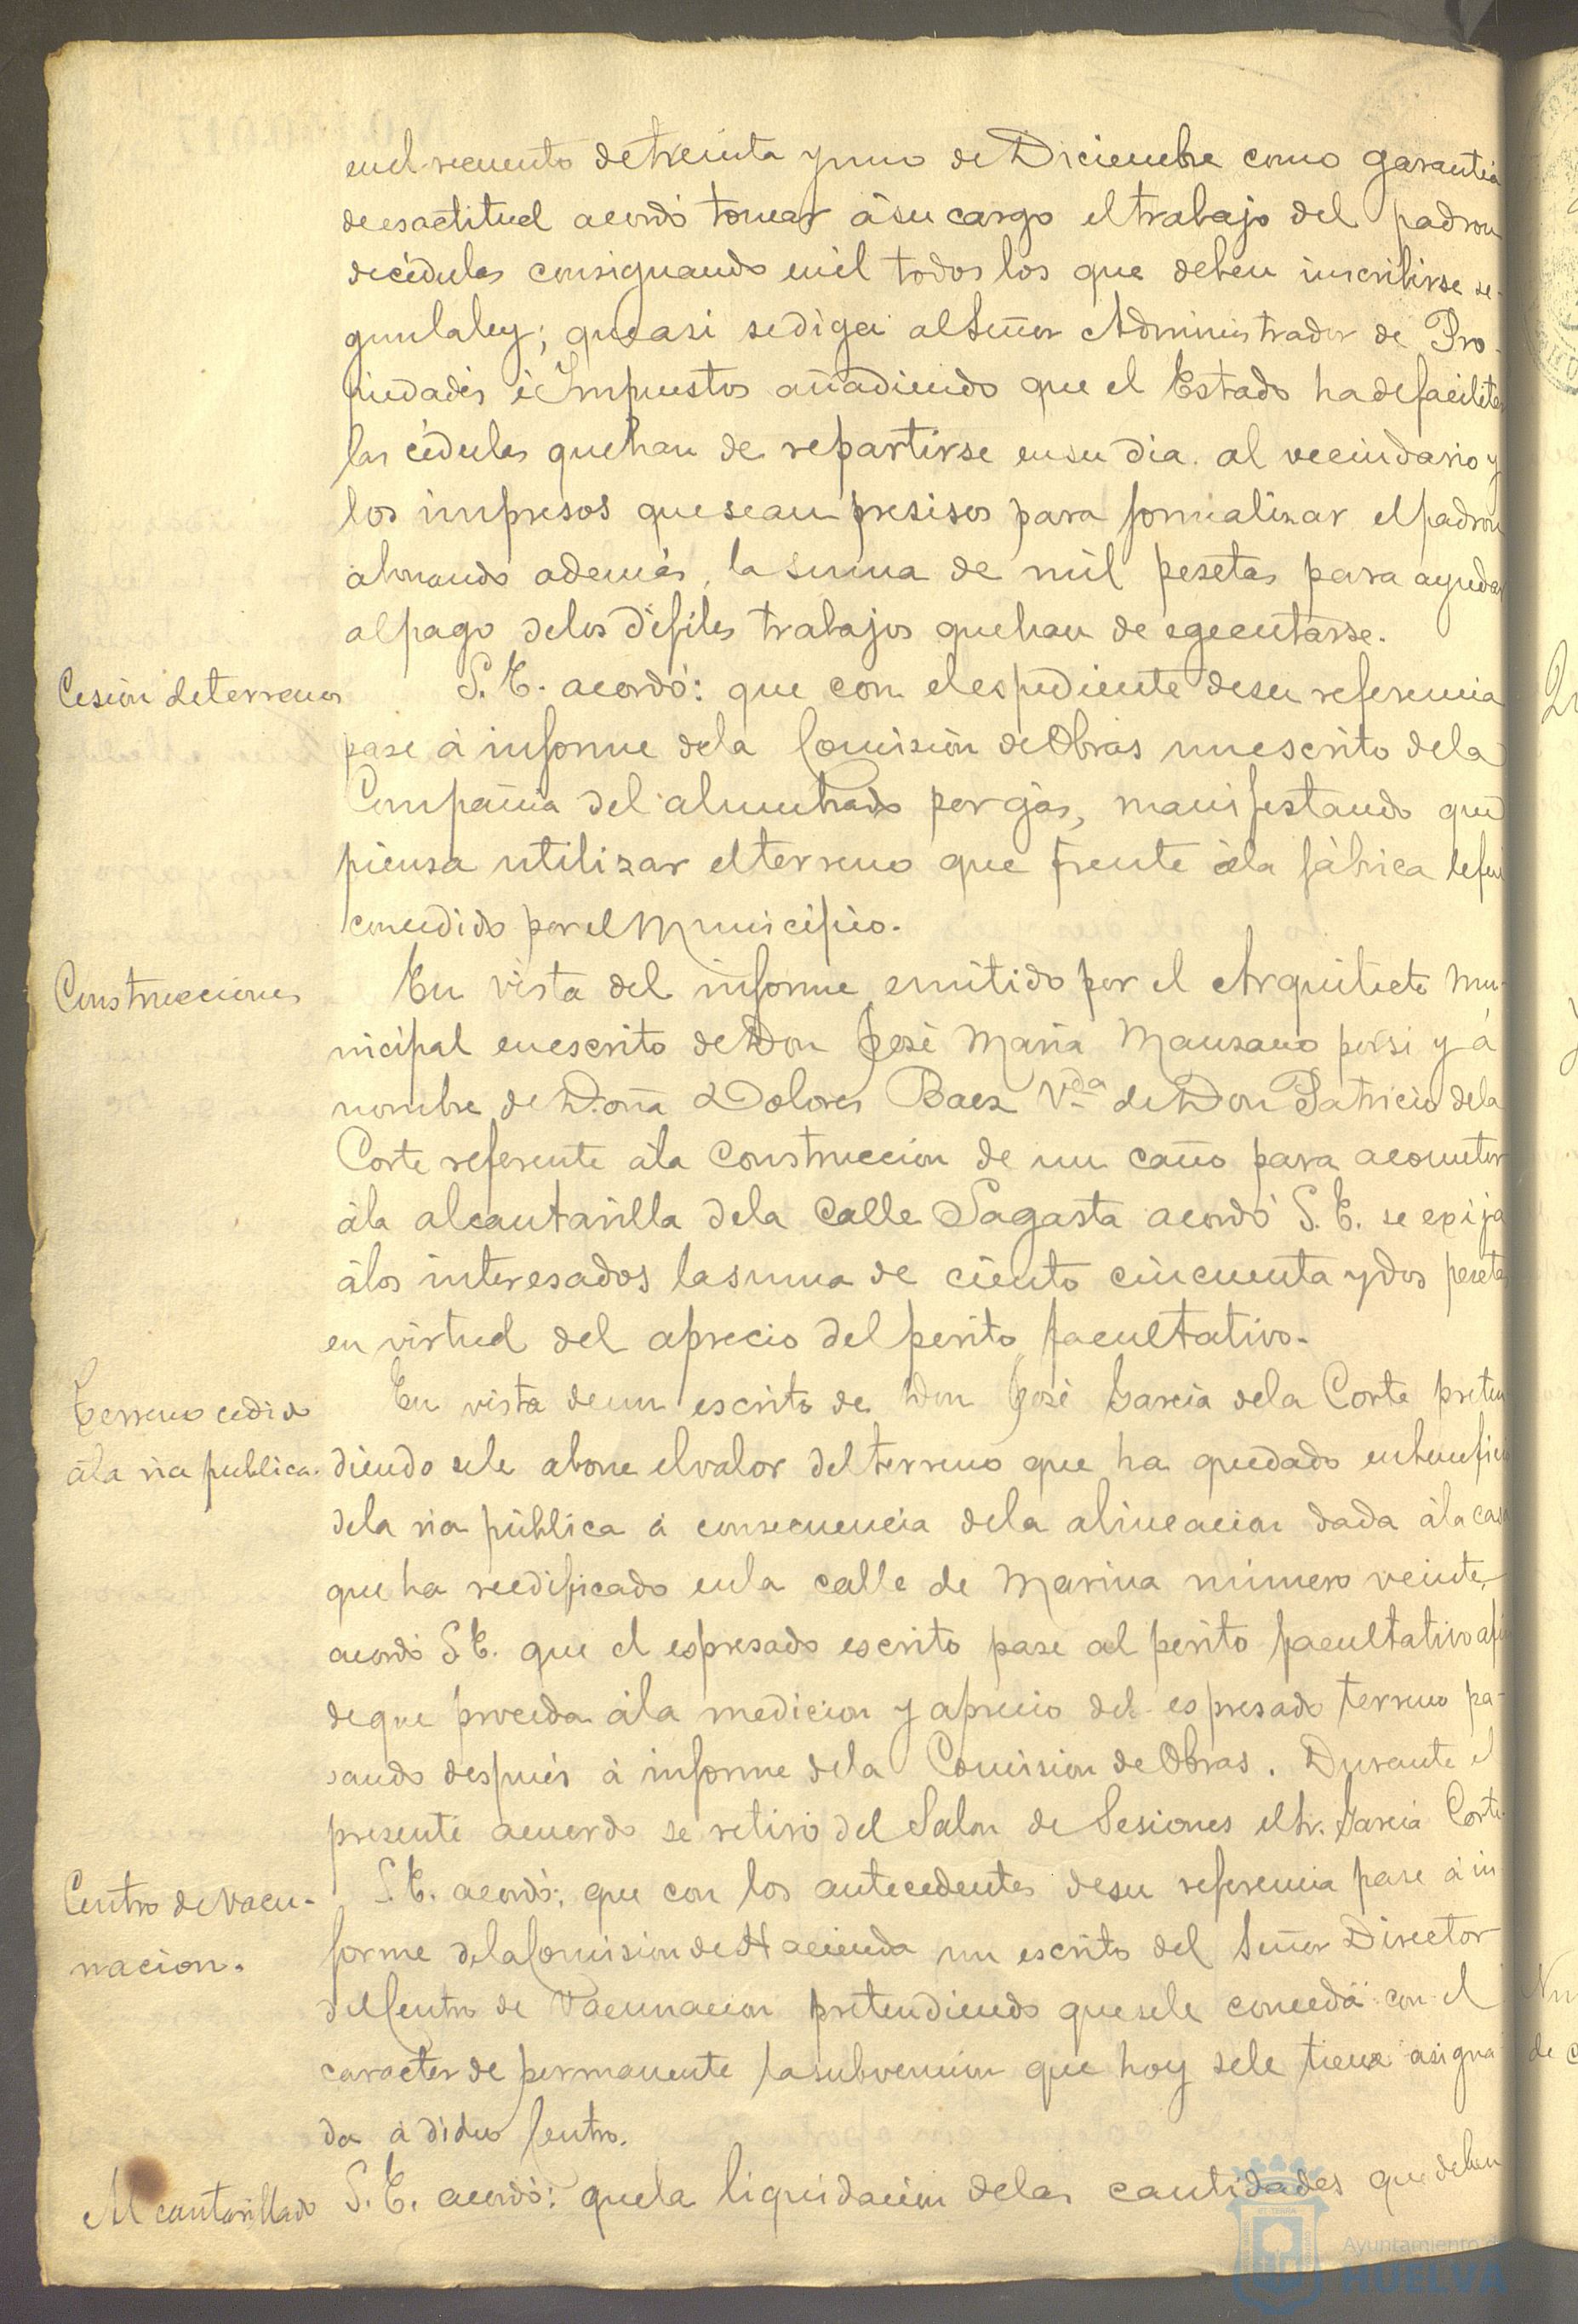 en el recuento de treinta y uno de Diciembre como garantia
de esactitud acordó tomar á su cargo el trabajo del padron
de cédulas consignando en él todos los que deben inscribirse se-
gun la ley; que asi se diga al Señor Administrador de Pro-
piedades é Impuestos añadiendo que el Estado ha de facilitar
las cédulas que han de repartirse en su dia al vecindario y
los impresos que sean presisos para formalizar el padron
abonando además, la suma de mil pesetas para ayudar
al pago de los dificiles trabajos que han de egecutarse.
Cesión de terrenos
S. E. acordó: que con el espediente de su referencia
pase á informe de la Comisión de Obras un escrito de la
Compañia del alumbrado por gás, manifestando que
piensa utilizar el terreno que frente á la fábrica le fué
concedido por el Municipio.
Construcciones
En vista del informe emitido por el Arquitecto Mu-
nicipal en escrito de Don José Maria Manzano por si y á
nombre de Doña Dolores Baez Vda de Don Patricio de la
Corte referente á la construccion de un caño para acometer
á la alcantarilla de la calle Sagasta acordó S. E. se exija
á los interesados la suma de ciento cincuenta y dos pesetas
en virtud del aprecio del perito facultativo.
Terreno cedido
á la via publica.
En vista de un escrito de Don José Garcia de la Corte preten
diendo se le abone el valor del terreno que ha quedado en beneficio
de la via pública á consecuencia de la alineacion dada á la casa
que ha reedificado en la calle de Marina número veinte,
acordó S. E. que el espresado escrito pase al perito facultativo a fin
de que proceda á la medicion y aprecio del espresado terreno pa-
sando después á informe de la Comision de Obras. Durante el
presente acuerdo se retiró del Salon de Sesiones el Sr. Garcia Corte.
Centro de vacu-
nacion.
S. E. acordó: que con los antecedentes de su referencia pase á in
forme de la Comision de Hacienda un escrito del Señor Director
del Centro de Vacunacion pretendiendo que se le conceda con el
caracter de permanente la subvención que hoy se le tiene asigna
da á dicho Centro.
Alcantarillado
S. E. acordó: que la liquidación de las cantidades que deben
Ayuntamiento de
HUELVA